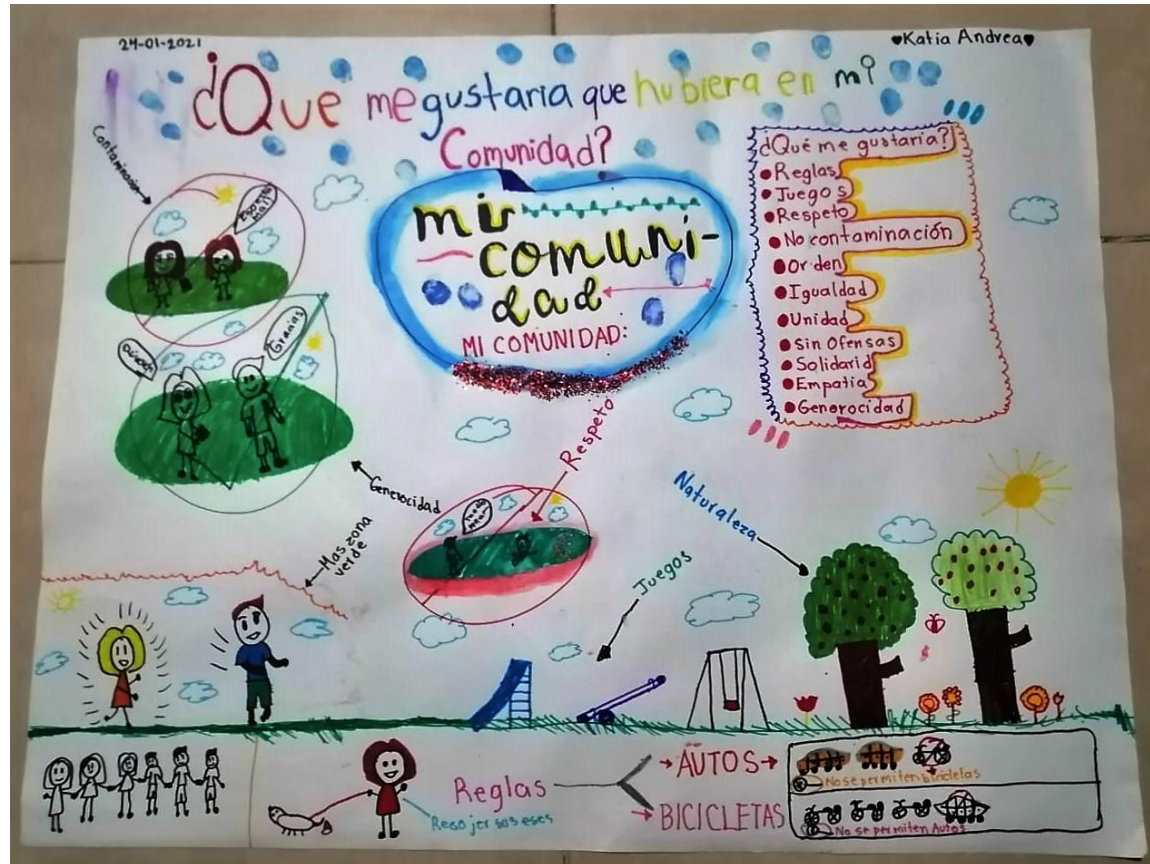 24-01-2021
♥Katia Andrea♥
¿Que me gustaria que hubiera en mi
Comunidad?
Contaminación
mi
comuni-
dad
MI COMUNIDAD:
¿Qué me gustaria?
Reglas
Juegos
Respeto
No contaminación
Orden
Igualdad
Unidad
Sin Ofensas
Solidarid
Empatia
Generocidad
Gracias
Respeto
Generocidad
Mas zona
verde
Naturaleza
Juegos
Reglas
Recojer sos eses
AUTOS
No se permiten bicicletas
BICICLETAS
No se permiten Autos